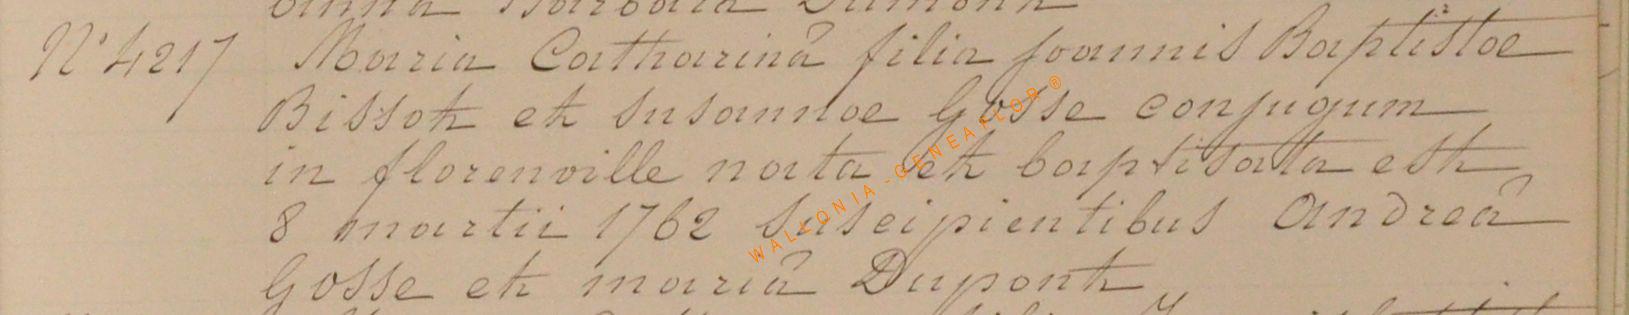 anna Barbara Dumont
N° 4217 Maria Catharinâ filia joannis Baptistae
Bissot et susannae Gosse conjugum
in florenville nata et baptisata est
8 martii 1762 suscipientibus Andreâ
Gosse et mariâ Dupont
WALLONIA-GENEAFLOR®